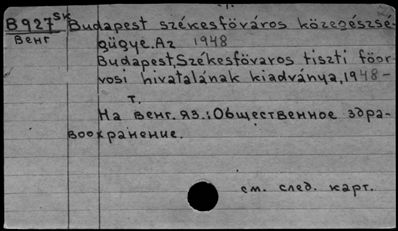 B927 SK Budapest székesföváros közegészsé-
Венг gügye. Az 1948
Budapest, Székesfövaros tiszti föor-
vosi hivatalának kiadványa, 1948-
т.
На венг. яз.: Общественное здра-
воохранение.
см. след. карт.